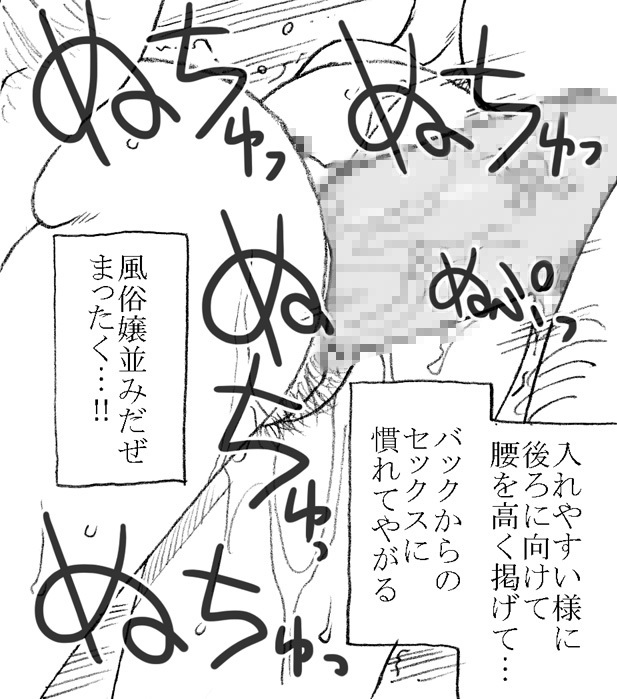 ぬちゅっ
ぬちゅっ
入れやすい様に
後ろに向けて
腰を高く掲げて…
バックからの
セックスに
慣れてやがる
ぬぷっ
ぬちゅっ
風俗嬢並みだぜ
まったく…!!
ぬちゅっ